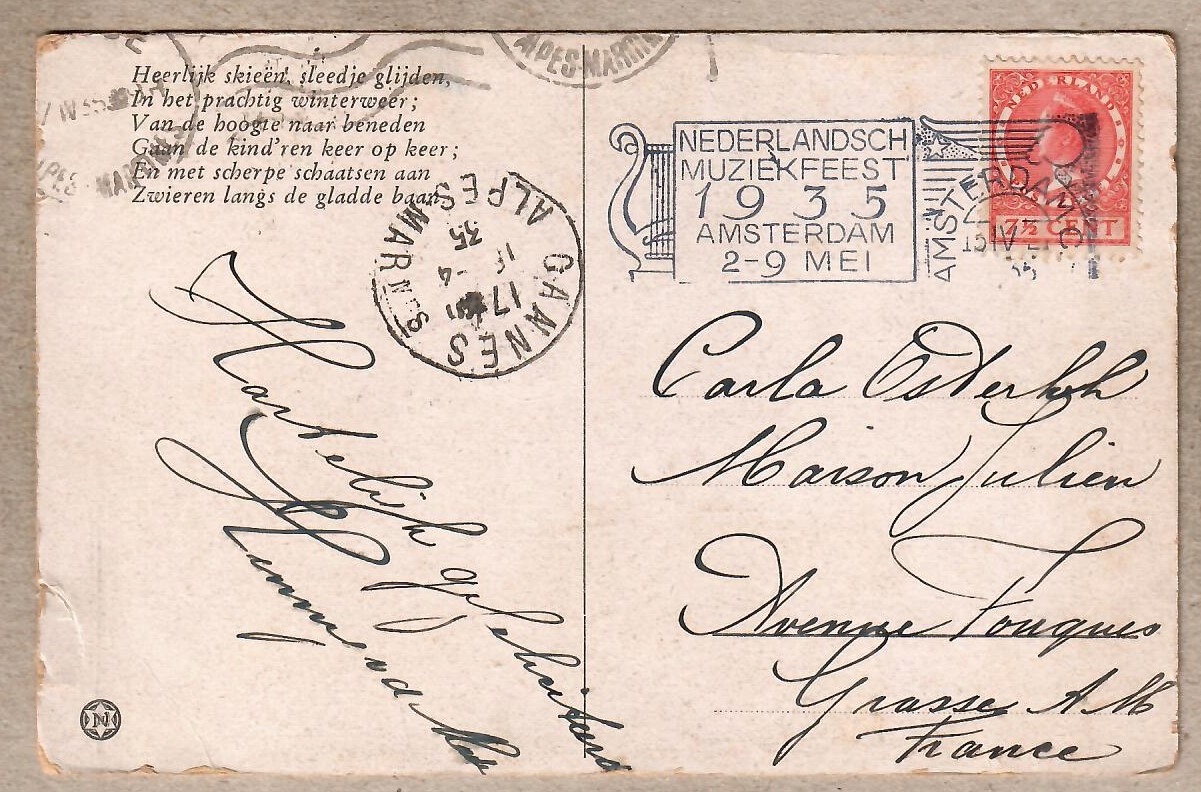 Heerlijk skieën, sleedje glijden,
In het prachtig winterweer;
Van de hoogte naar beneden
Gaan de kind'ren keer op keer;
En met scherpe schaatsen aan
Zwieren langs de gladde baan.
ALPES-MARITIMES
ALPES-MARITIMES
CANNES
ALPES MARNES
17
16 - 4
35
NEDERLANDSCH
MUZIEKFEEST
1935
AMSTERDAM
2-9 MEI
AMSTERDAM
15 IV
35
NEDERLAND
7½ CENT
Hartelijk gefeliciteerd
Carla
Maison Julien
Avenue Fouques
Grasse A M
France
N